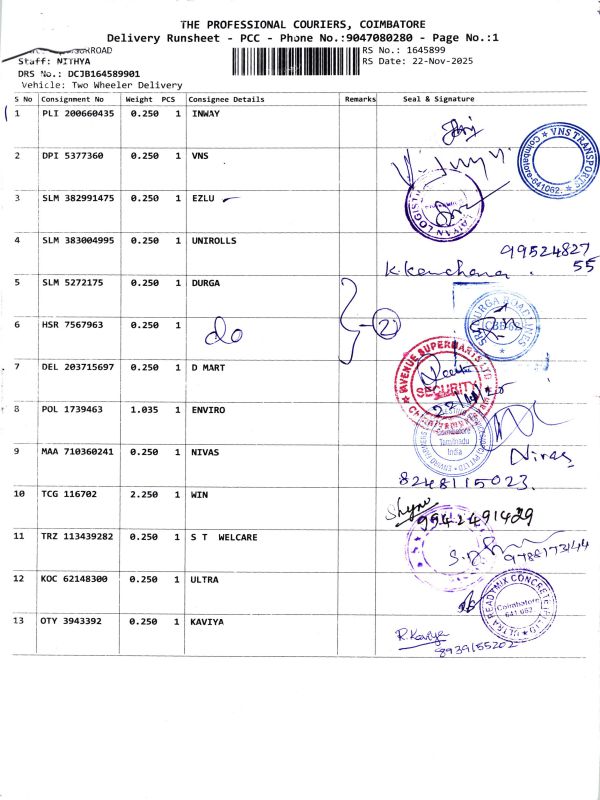 THE PROFESSIONAL COURIERS, COIMBATORE
Delivery Runsheet - PCC - Phone No.:9047080280 - Page No.:1
ROAD RS No.: 1645899
Staff: NITHYA RS Date: 22-Nov-2025
DRS No.: DCJB164589901
Vehicle: Two Wheeler Delivery
S No Consignment No Weight PCS Consignee Details Remarks Seal & Signature
1 PLI 200660435 0.250 1 INWAY
2 DPI 5377360 0.250 1 VNS
VNS TRANSPORTS Coimbatore-641062.
3 SLM 382991475 0.250 1 EZLU
4 SLM 383004995 0.250 1 UNIROLLS
99524827
55
K. Kanchana.
5 SLM 5272175 0.250 1 DURGA
6 HSR 7567963 0.250 1 do 2
SRI DURGA ROADLINES
7 DEL 203715697 0.250 1 D MART
AVENUE SUPERMARTS LTD
SECURITY
8 POL 1739463 1.035 1 ENVIRO
Coimbatore
Tamilnadu
India
9 MAA 710360241 0.250 1 NIVAS
Nivas
8248115023.
10 TCG 116702 2.250 1 WIN
9542491429
11 TRZ 113439282 0.250 1 S T WELCARE
9788173144
12 KOC 62148300 0.250 1 ULTRA
ULTRA READYMIX CONCRETE
Coimbatore
641 062
13 OTY 3943392 0.250 1 KAVIYA
R. Kaviya
8939155202